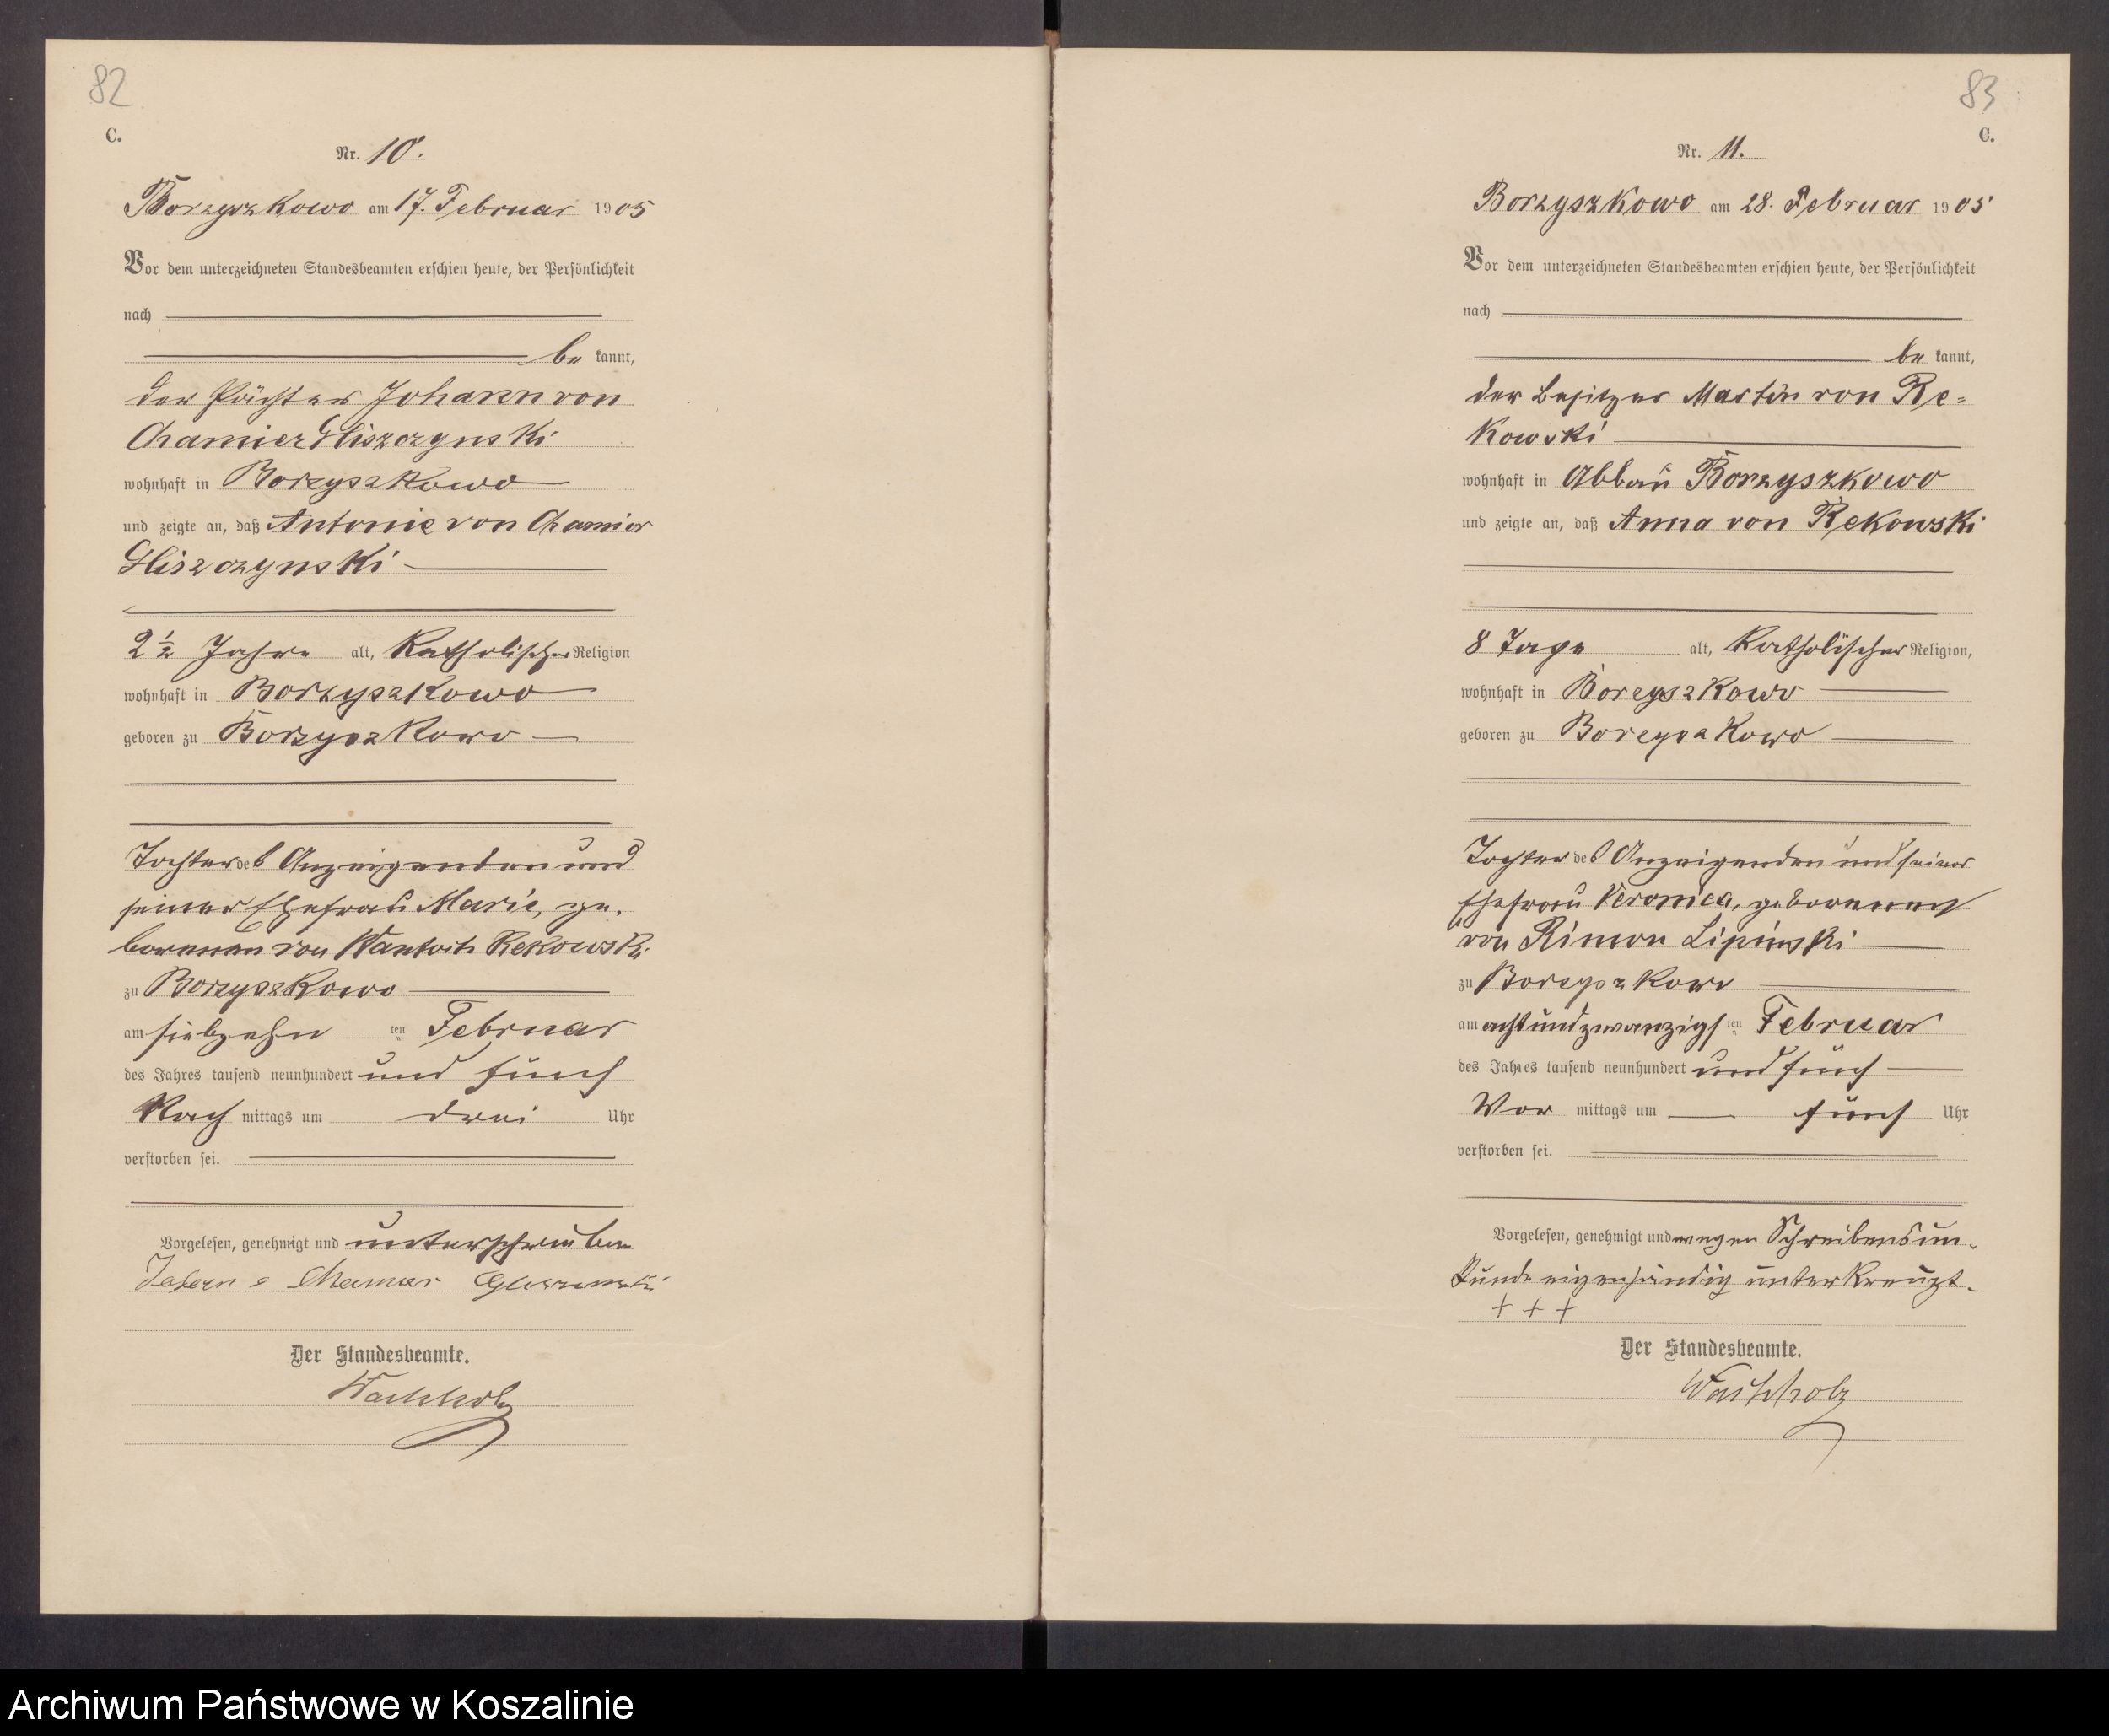 82
C.
Nr. 10.
Borzyszkowo am 17. Februar 1905
Vor dem unterzeichneten Standesbeamten erschien heute, der Persönlichkeit
nach
be kannt,
der Pächter Johann von
Chamier Gliszczynski
wohnhaft in Borzyszkowo
und zeigte an, daß Antonie von Chamier
Gliszczynski
2 1/2 Jahre alt, Katholischer Religion
wohnhaft in Borzyszkowo
geboren zu Borzyszkowo
Tochter des Anzeigenden und
seiner Ehefrau Marie, ge-
borenen von Wantoch Rekowski
zu Borzyszkowo
am siebzehn ten Februar
des Jahres tausend neunhundert und fünf
Nach mittags um drei Uhr
verstorben sei.
Vorgelesen, genehmigt und unterschrieben
Johann Chamier
Der Standesbeamte.
Wachholz
83
C.
Nr. 11.
Borzyszkowo am 28. Februar 1905
Vor dem unterzeichneten Standesbeamten erschien heute, der Persönlichkeit
nach
be kannt,
der Besitzer Martin von Re=
kowski
wohnhaft in Abbau Borzyszkowo
und zeigte an, daß Anna von Rekowski
8 Tage alt, Katholischer Religion,
wohnhaft in Borzyszkowo
geboren zu Borzyszkowo
Tochter des Anzeigenden und seiner
Ehefrau Veronica, geborenen
von Rimon Lipinski
zu Borzyszkowo
am achtundzwanzigs ten Februar
des Jahres tausend neunhundert und fünf
Vor mittags um fünf Uhr
verstorben sei.
Vorgelesen, genehmigt und wegen Schreibensun-
kunde eigenhändig unterkreuzt.
+ + +
Der Standesbeamte.
Wachholz
Archiwum Państwowe w Koszalinie